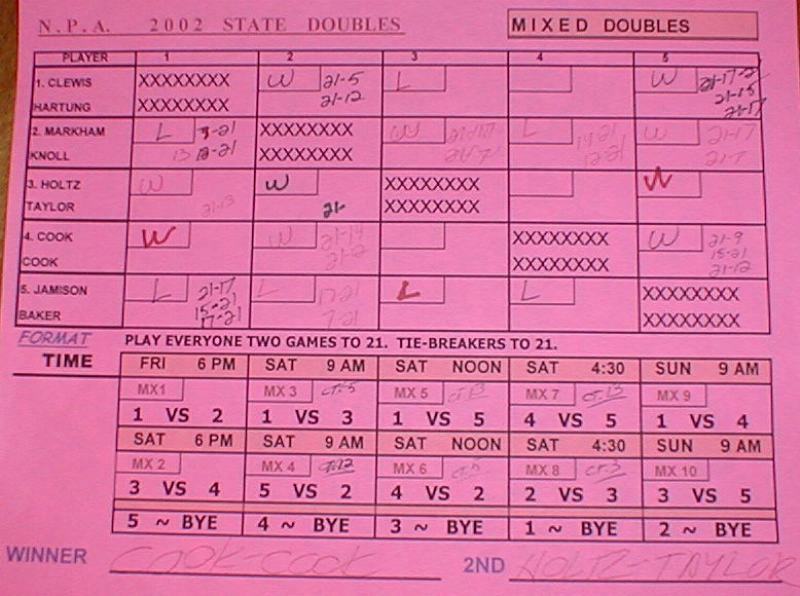 N.P.A. 2002 STATE DOUBLES MIXED DOUBLES
PLAYER 1 2 3 4 5
1. CLEWIS XXXXXXXX W 21-5 L W 21-17
HARTUNG XXXXXXXX 21-12 21-15
21-17
2. MARKHAM L 3-21 XXXXXXXX W L 19-21 W 21-17
KNOLL 13 12-21 XXXXXXXX 12-21 21-7
3. HOLTZ W W XXXXXXXX W
TAYLOR 21-13 21- XXXXXXXX
4. COOK W W 21-14 XXXXXXXX W 21-9
COOK 21-2 XXXXXXXX 15-21
21-12
5. JAMISON L 21-17 L 17-21 L L XXXXXXXX
BAKER 15-21 7-21 XXXXXXXX
17-21
FORMAT PLAY EVERYONE TWO GAMES TO 21. TIE-BREAKERS TO 21.
TIME FRI 6 PM SAT 9 AM SAT NOON SAT 4:30 SUN 9 AM
MX1 MX 3 CT.5 MX 5 CT.13 MX 7 CT.13 MX 9
1 VS 2 1 VS 3 1 VS 5 4 VS 5 1 VS 4
SAT 6 PM SAT 9 AM SAT NOON SAT 4:30 SUN 9 AM
MX 2 MX 4 CT.12 MX 6 CT.5 MX 8 CT.3 MX 10
3 VS 4 5 VS 2 4 VS 2 2 VS 3 3 VS 5
5 ~ BYE 4 ~ BYE 3 ~ BYE 1 ~ BYE 2 ~ BYE
WINNER COOK-COOK 2ND HOLTZ-TAYLOR